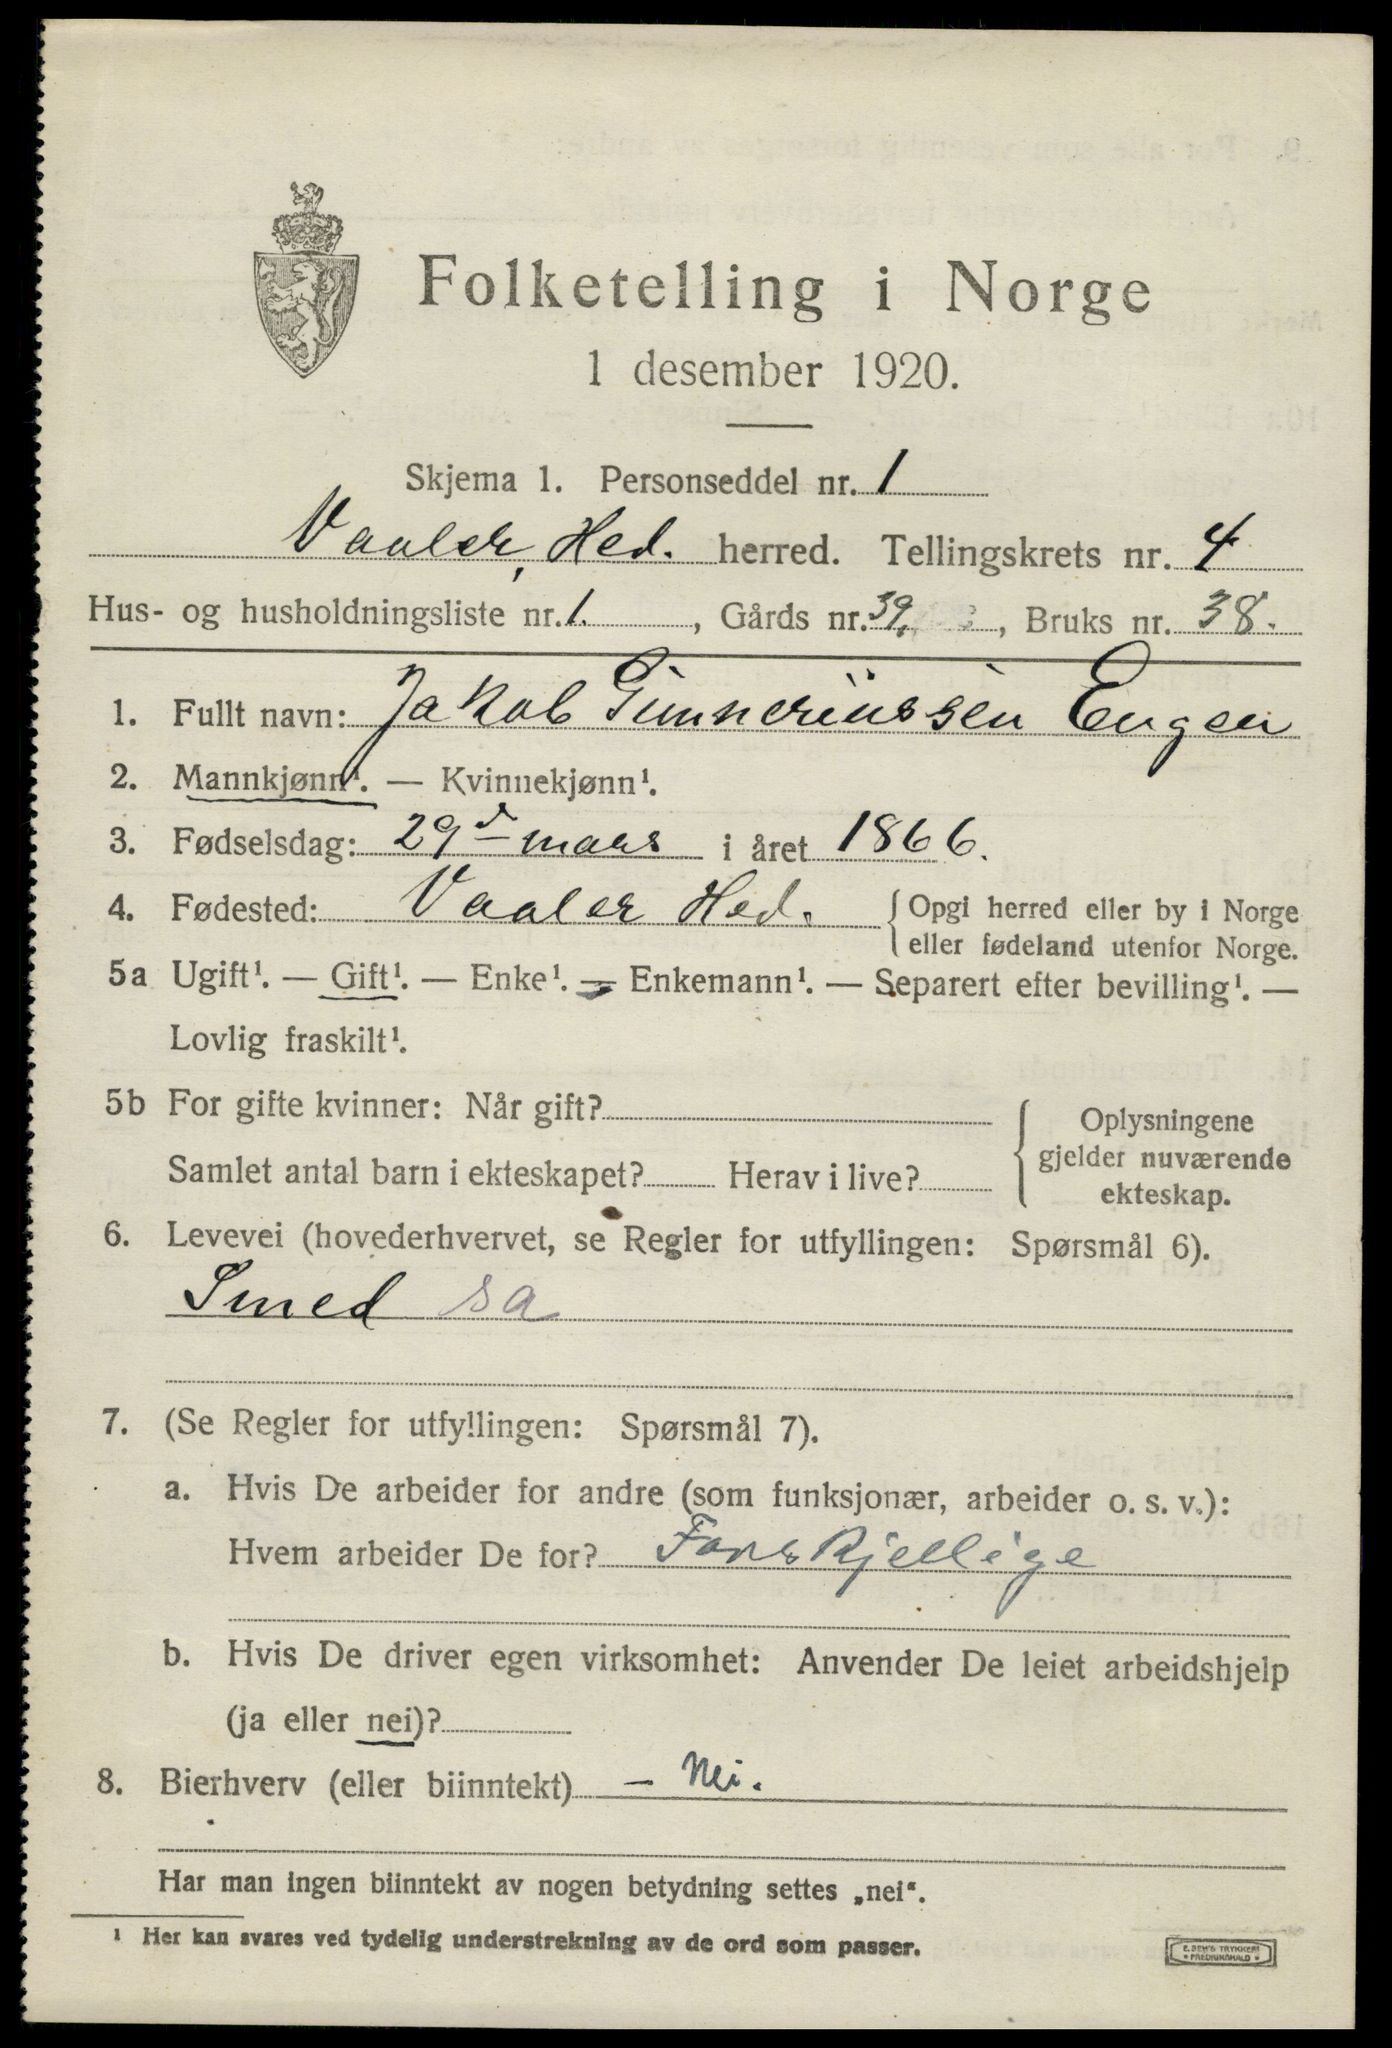 Folketelling i Norge
1 desember 1920.
Skjema 1. Personseddel nr. 1
Vaaler, Hed. herred. Tellingskrets nr. 4
Hus- og husholdningsliste nr. 1. , Gårds nr. 39, , Bruks nr. 38.
1. Fullt navn: Jakob Gunneriussen Engen
2. Mannkjønn¹. — Kvinnekjønn¹.
3. Fødselsdag: 29d mars i året 1866.
4. Fødested: Vaaler Hed. { Opgi herred eller by i Norge
eller fødeland utenfor Norge.
5a Ugift¹. — Gift¹. — Enke¹. — Enkemann¹. — Separert efter bevilling¹. —
Lovlig fraskilt¹.
5b For gifte kvinner: Når gift?
Samlet antal barn i ekteskapet? Herav i live?
{ Oplysningene
gjelder nuværende
ekteskap.
6. Levevei (hovederhvervet, se Regler for utfyllingen: Spørsmål 6).
Smed sa
7. (Se Regler for utfyllingen: Spørsmål 7).
a. Hvis De arbeider for andre (som funksjonær, arbeider o. s. v.):
Hvem arbeider De for? Forskjellige
b. Hvis De driver egen virksomhet: Anvender De leiet arbeidshjelp
(ja eller nei)?
8. Bierhverv (eller biinntekt) — Nei.
Har man ingen biinntekt av nogen betydning settes „nei“.
¹ Her kan svares ved tydelig understrekning av de ord som passer.